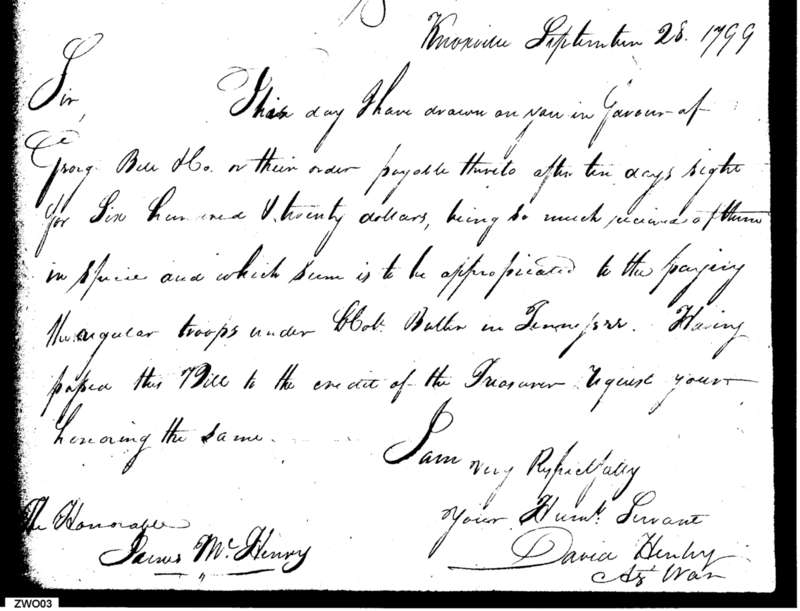 Knoxville September 28. 1799
Sir,
This day I have drawn on you in favour of
Georg Bell & Co. or their order payable thereto after ten days sight
for Six hundred & twenty dollars, being so much recieved of them
in specie and which sum is to be appropriated to the paying
the regular troops under Col. Butler in Tennessee. Having
passed this Bill to the credit of the Treasurer request your
honoring the same.
I am
very Respectfully
Your Humb. Servant
David Henley
Ag. War
The Honorable
James McHenry
ZWO03